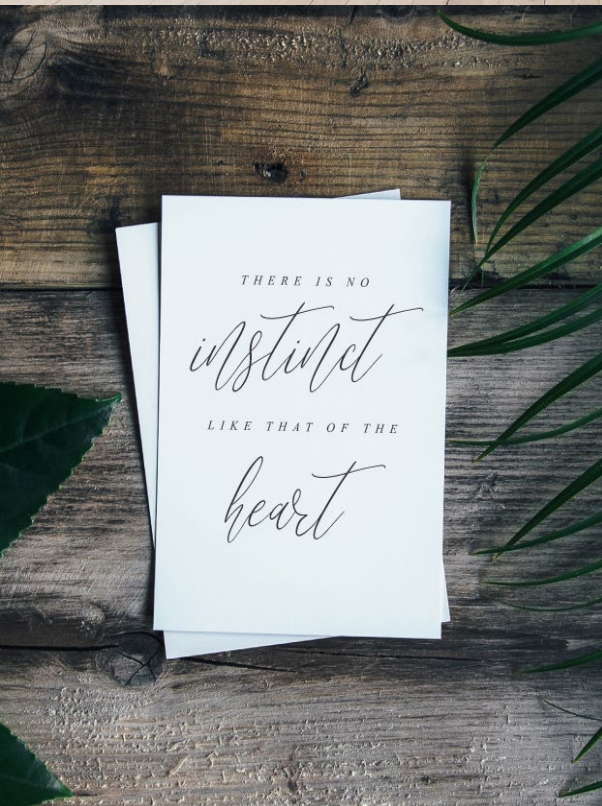 THERE IS NO
instinct
LIKE THAT OF THE
heart